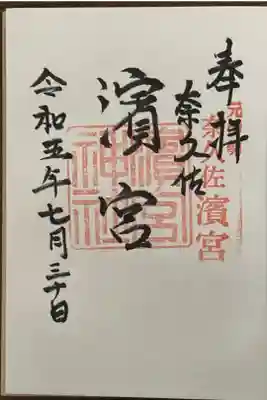 奉拝
元伊勢
奈久佐濱宮
奈久佐
濱宮
濱宮神社
令和五年七月三十日